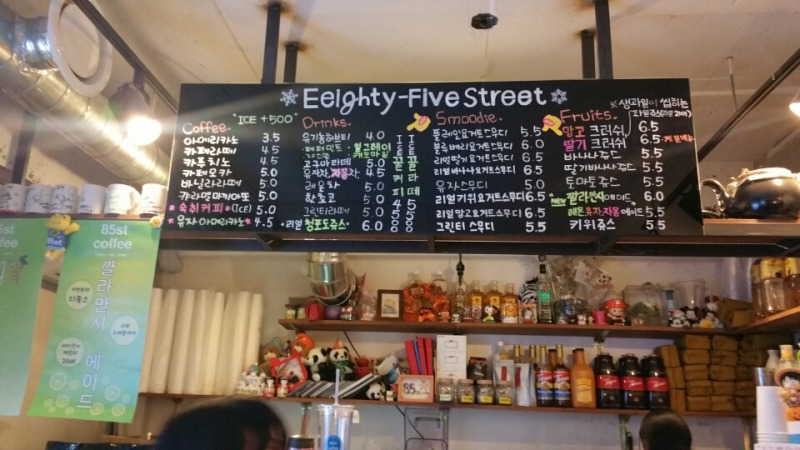 Eeighty-Five Street
Coffee. ICE +500
아메리카노 3.5
카페라떼 4.5
카푸치노 4.5
카페모카 5.0
바닐라라떼 5.0
캬라멜마끼아또 5.0
숙취커피 (ICE) 5.0
유자아메리카노 4.5
Drinks.
유기농허브티 4.0
페퍼민트 얼그레이
캐모마일
고구마라떼 5.0
유자차,자몽차 4.5
레몬차 5.0
핫초코 5.0
그린티라떼 5.0
리얼청포도쥬스 6.0
꿀꿀
커라
피떼
Smoodie.
플레인요거트스무디 5.5
블루베리요거트스무디 6.0
리얼딸기요거트스무디 6.0
리얼바나나요거트스무디 6.0
유자스무디 5.5
리얼키위요거트스무디 6.5
리얼망고요거트스무디 6.5
그린티 스무디 5.5
Fruits.
※ 생과일이 씹히는
망고 크러쉬 6.5
딸기 크러쉬 6.5
바나나쥬스 5.5
딸기바나나쥬스 5.5
토마토쥬스 5.5
NEW 깔라만시에이드 6.0
레몬,유자,자몽에이드 5.5
키위쥬스 5.5
85st
coffee
깔라만시 에이드
디톡스
85st
coffee
85